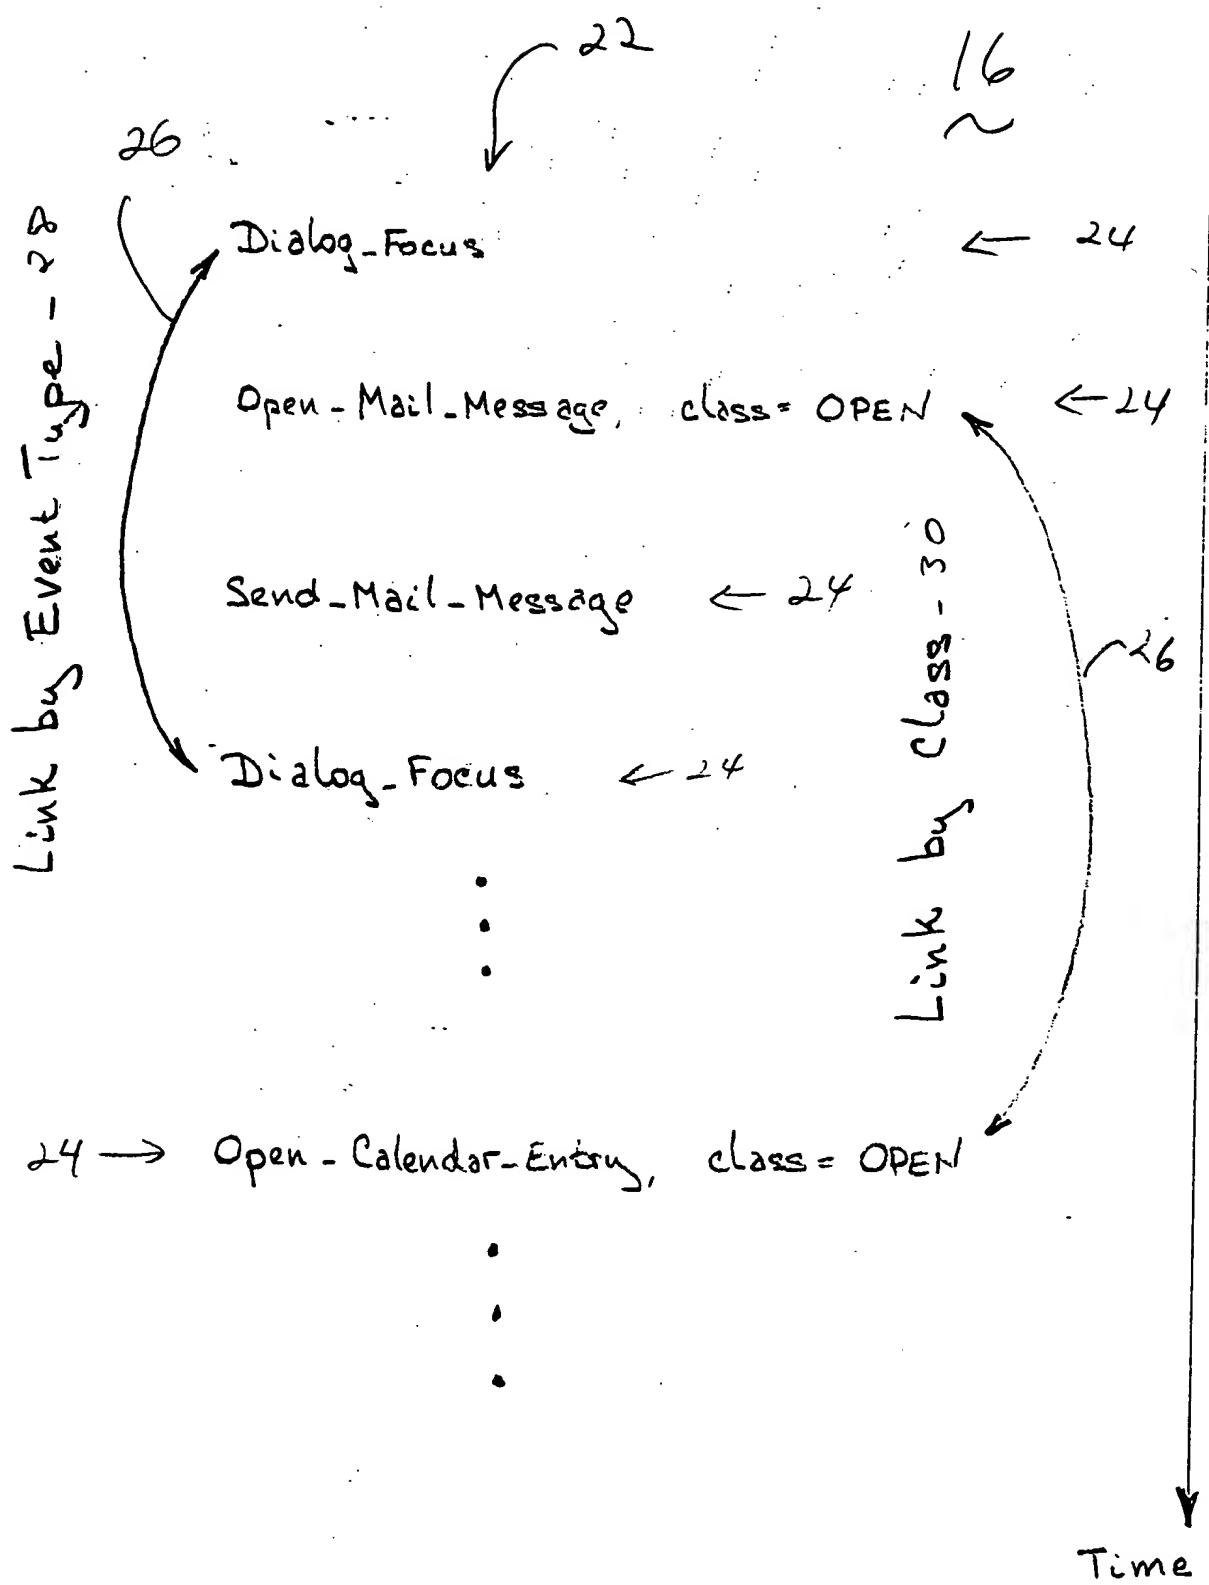 22
16
26
Link by Event Type - 28
Dialog_Focus ← 24
Open-Mail-Message, class= OPEN ← 24
Send-Mail-Message ← 24
Link by Class - 30
26
Dialog_Focus ← 24
24 → Open-Calendar-Entry, class= OPEN
Time